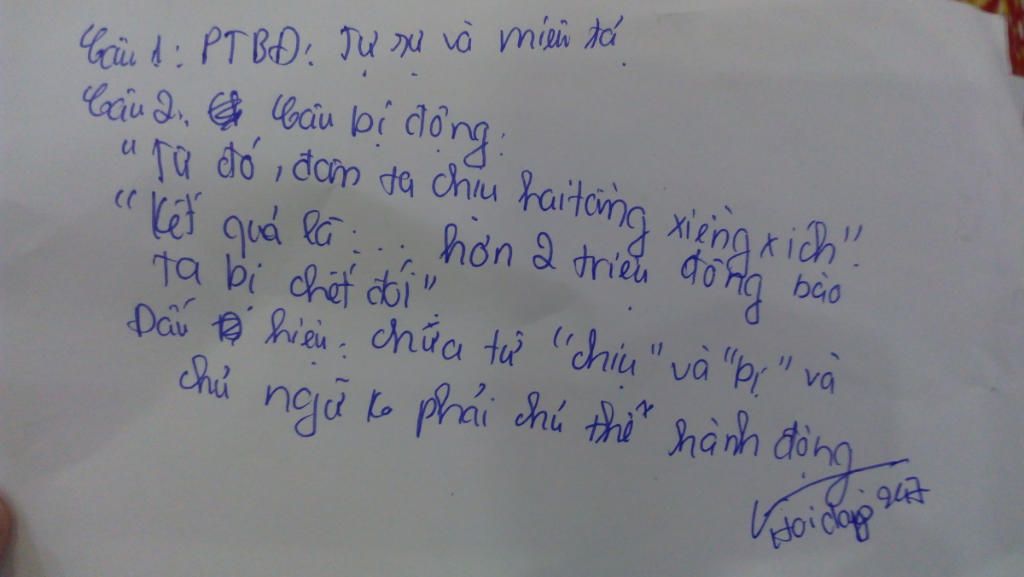 Câu 1: PTBĐ: Tự sự và miêu tả
Câu 2: Câu bị động:
"Từ đó, dân ta chịu hai tầng xiềng xích".
"Kết quả là: ... hơn 2 triệu đồng bào
ta bị chết đói"
Dấu hiệu: chứa từ "chịu" và "bị" và
chủ ngữ ko phải chủ thể hành động
Hoidap247